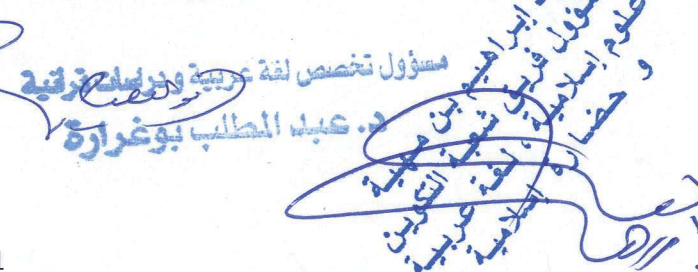 مسؤول تخصص لغة عربية ودراسات قرآنية
د. عبد المطلب بوغرارة
إبراهيم بن مهية
مسؤول فريق شعبة التكوين
علوم إسلامية، لغة عربية
و حضارة إسلامية